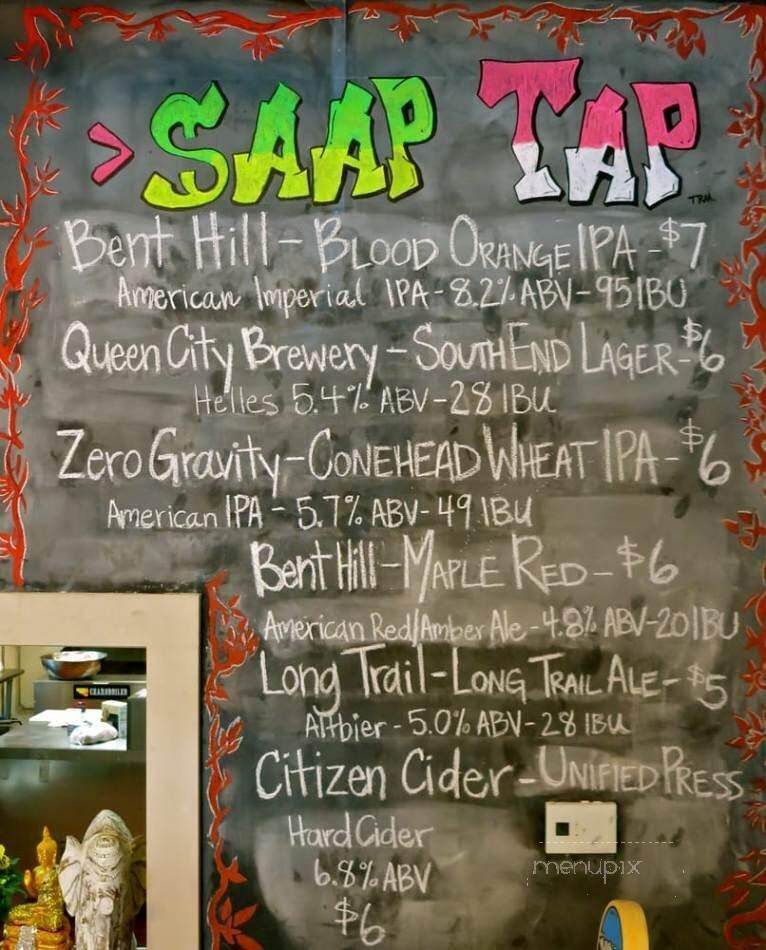 > SAAP TAP
TBM
Bent Hill - BLOOD ORANGE IPA - $7
American Imperial IPA - 8.2% ABV - 95 IBU
Queen City Brewery - SOUTH END LAGER - $6
Helles 5.4% ABV - 28 IBU
Zero Gravity - CONEHEAD WHEAT IPA - $6
American IPA - 5.7% ABV - 49 IBU
Bent Hill - MAPLE RED - $6
American Red/Amber Ale - 4.8% ABV - 20 IBU
Long Trail - LONG TRAIL ALE - $5
Altbier - 5.0% ABV - 28 IBU
Citizen Cider - UNIFIED PRESS
Hard Cider
6.8% ABV
$6
CHARBROILER
menupix